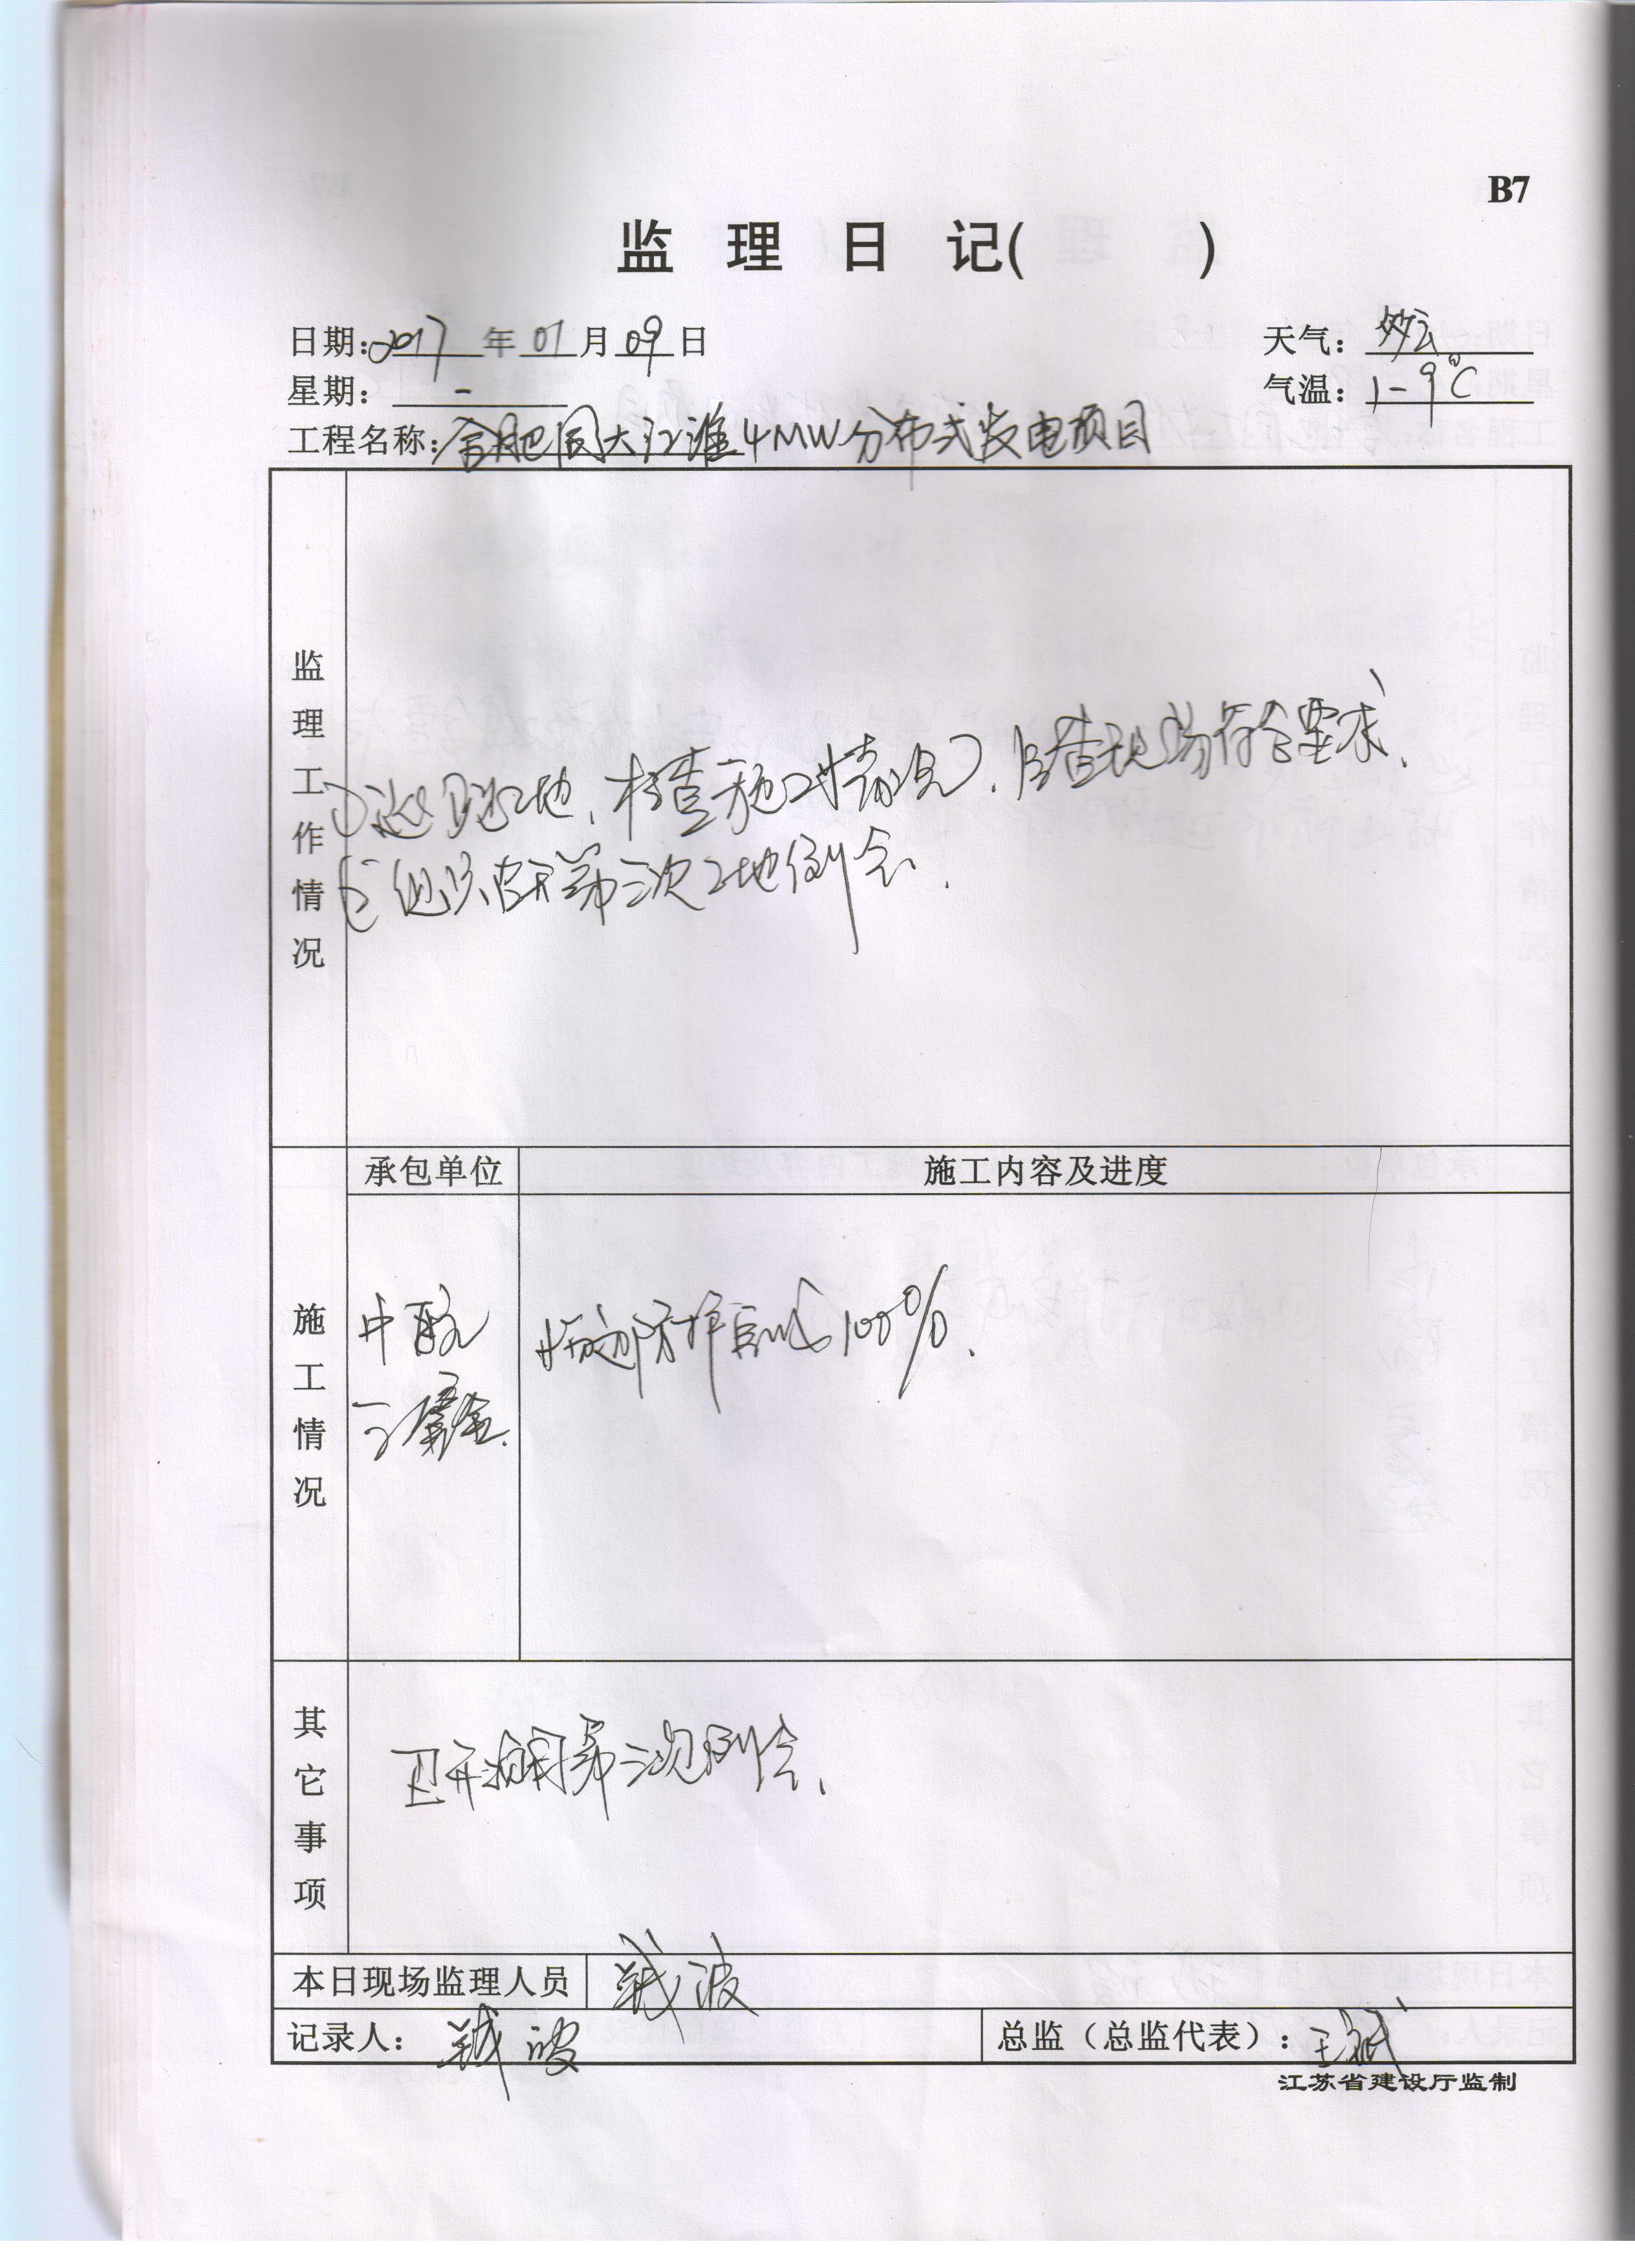 B7
监 理 日 记( )
日期: 2017 年 01 月 09 日
天气: 多云
星期: 一
气温: 1-9℃
工程名称: 合肥同大江淮4MW分布式发电项目
监理工作情况
①巡视工地、检查施工情况,经查现场符合要求.
②组织召开第二次工地例会.
承包单位
施工内容及进度
施工情况
中
100%.
其它事项
召开 第二次例会.
本日现场监理人员
波
记录人: 波
总监(总监代表): 王斌
江苏省建设厅监制